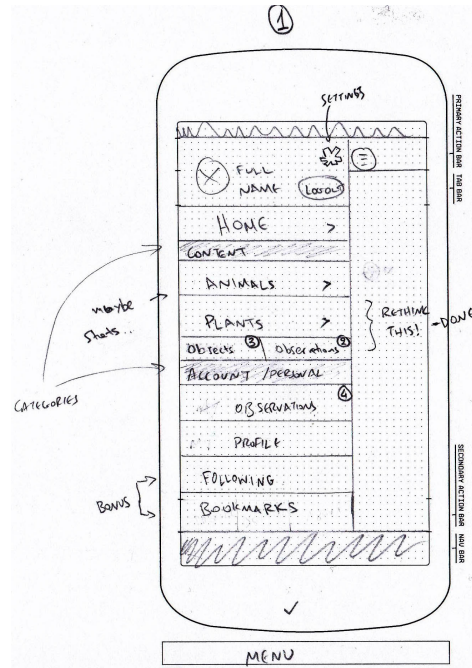 1
SETTINGS
FULL
NAME
LOGOUT
HOME >
CONTENT
ANIMALS >
PLANTS >
Objects 3 Observations 2
ACCOUNT / PERSONAL
OBSERVATIONS 4
PROFILE
FOLLOWING
BOOKMARKS
maybe
stats..
CATEGORIES
BONUS
RETHINK
THIS! → DONE
PRIMARY ACTION BAR
TAB BAR
SECONDARY ACTION BAR
NAV BAR
MENU